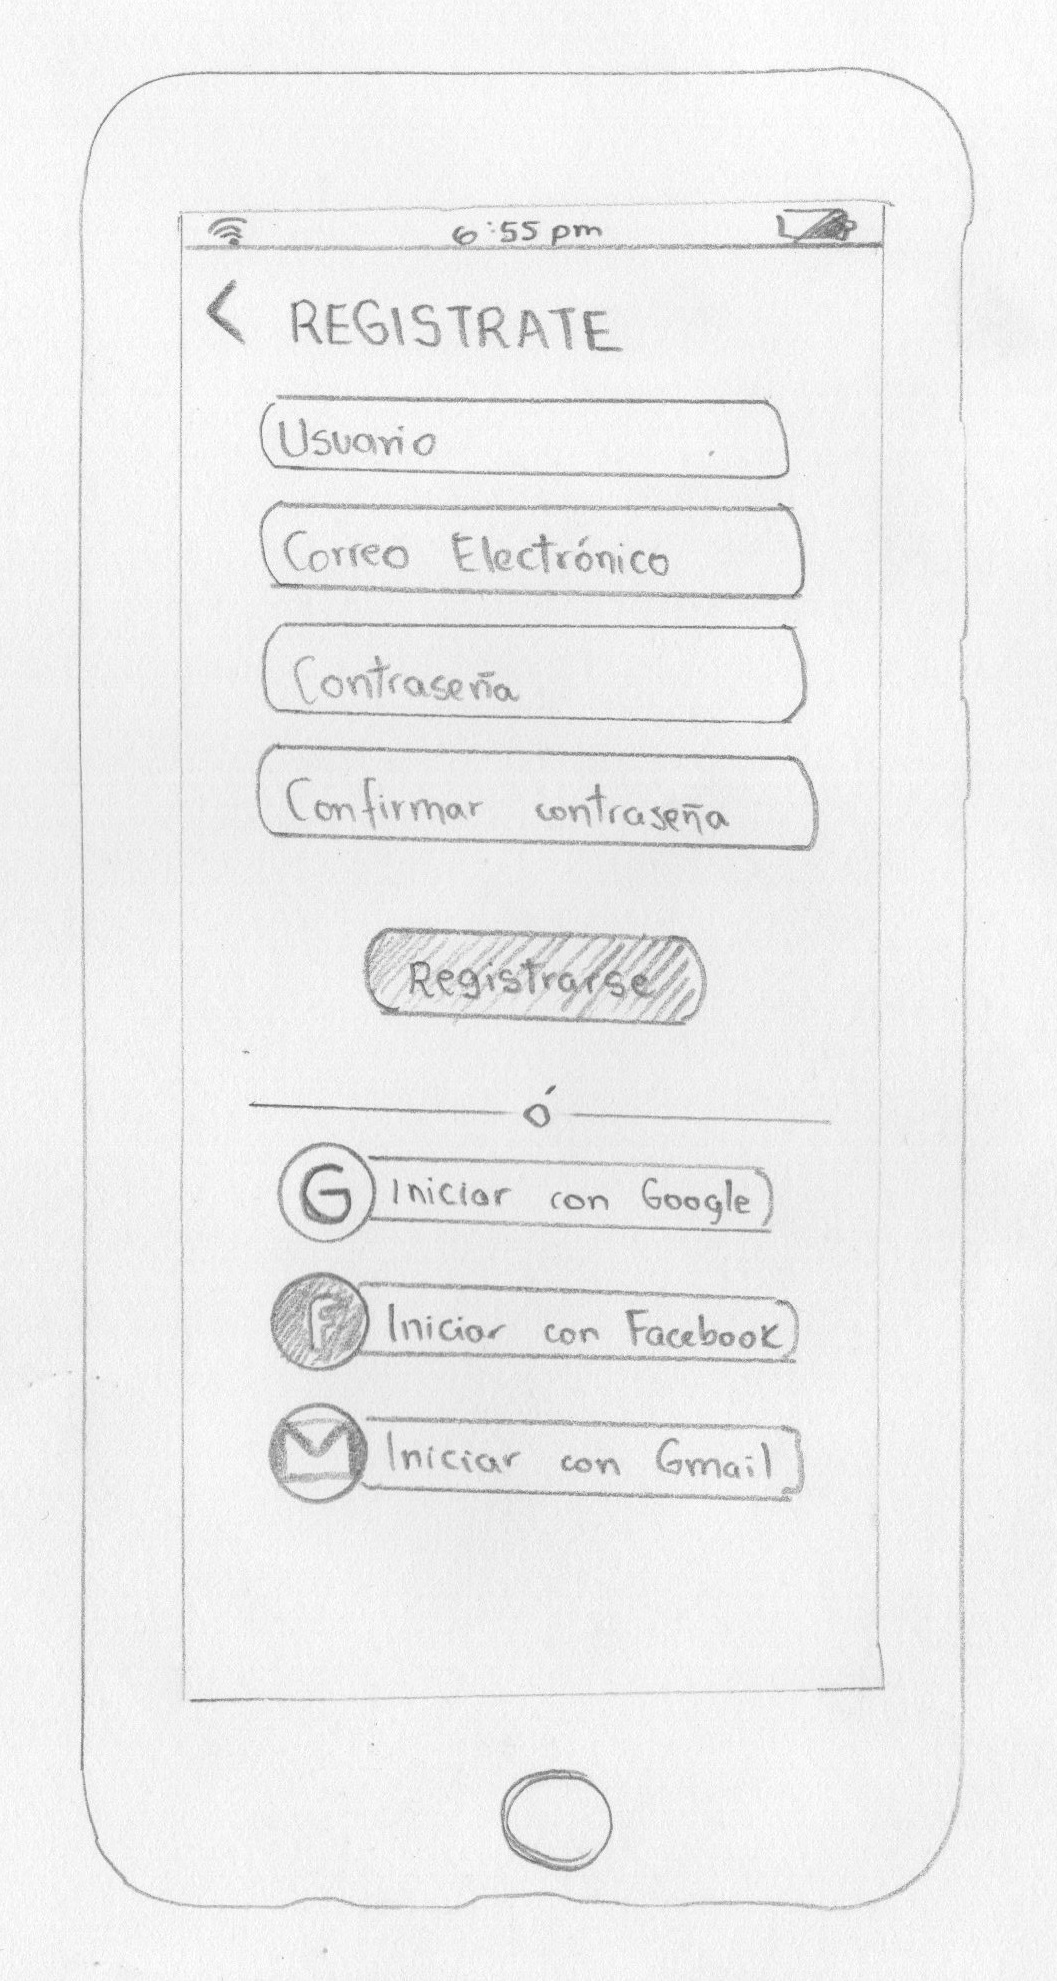 6:55 pm
REGISTRATE
Usuario
Correo Electrónico
Contraseña
Confirmar contraseña
Registrarse
ó
G Iniciar con Google
f Iniciar con Facebook
Iniciar con Gmail